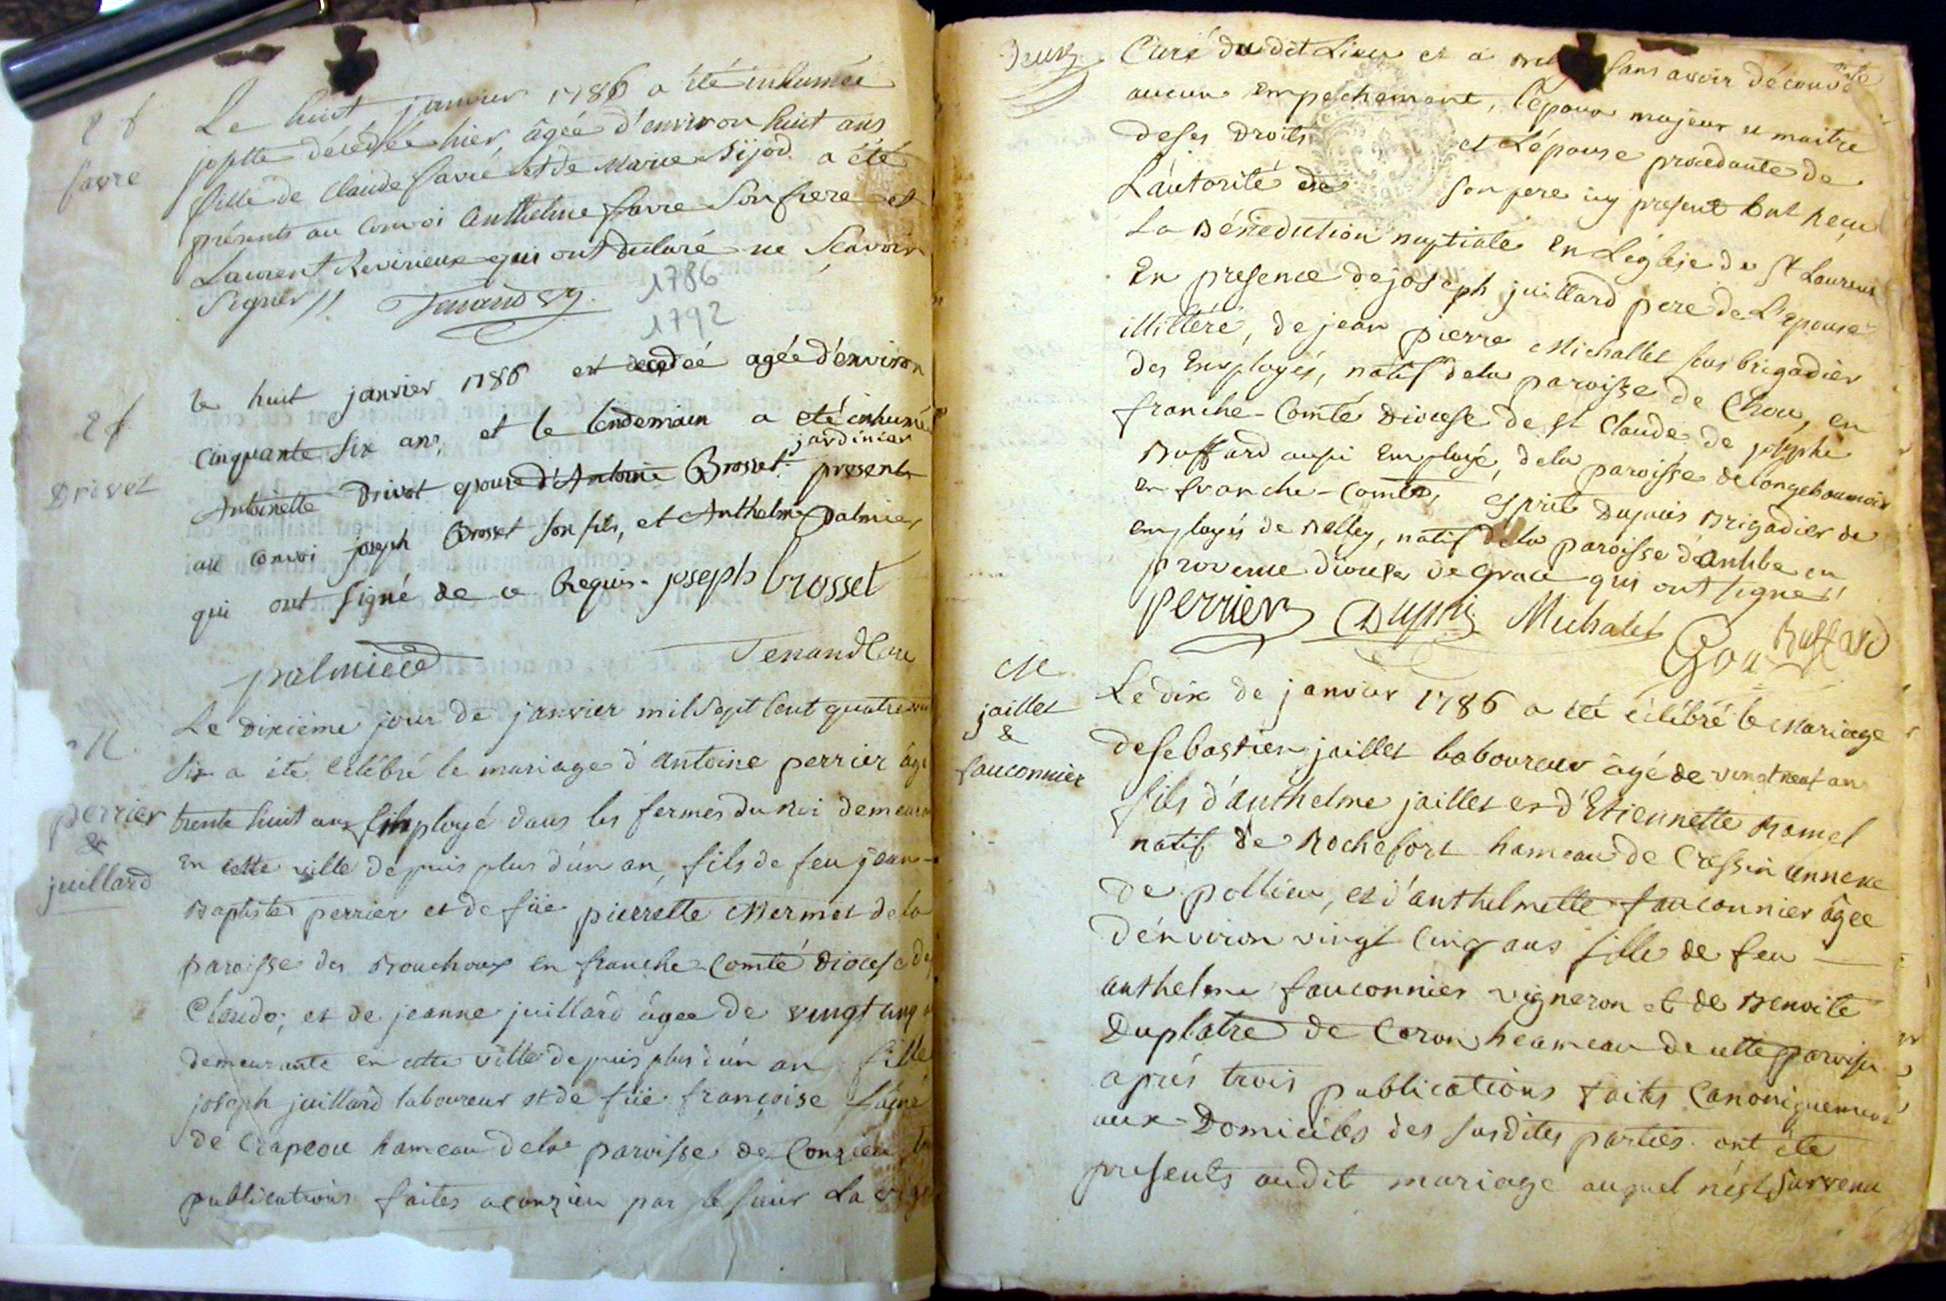 2 f
favre
Le huit janvier 1786 a été inhumée
josptte décédée hier, âgée d'environ huit ans
fille de Claude favre et de Marie Sijod. a été
présents au convoi Anthelme favre Son frere et
Laurent Revirieux qui ont déclaré ne Scavoir
Signer //. Tenand
1786
1792
2 f
Drivet
le huit janvier 1786 est decedée agée d'environ
Cinquante Six ans, et le lendemain a eté inhumé
jardinier
Antoinette Drivet epouse d'Antoine Brosset presents
au convoi joseph Brosset son fils, et Anthelme Palmier
qui ont signé de ce Requis. joseph brosset
palmier Tenand Cure
M.
perrier
&
juillard
Le Dixième jour de janvier mil Sept Cent quatre vin
Six a été Célébré le mariage d'Antoine perrier âgé
trente huit ans Employé dans les fermes du Roi demeura
En cette ville depuis plus d'un an, fils de feu jean-
Baptiste perrier et de füe pierrette Mermet de la
paroisse des Bouchoux en franche-Comté Diocese de
Claude; et de jeanne juillard âgee de vingt cinq
demeurante en cette ville depuis plus d'un an fille
joseph juillard laboureur et de füe françoise
de Crapeou hameau de la paroisse de Conzieu
publications faites a Conzieu par le Sieur La
Curé du dit Lieu et a Bel Sans avoir découvert
aucun Empechement, l'epoux majeur et maitre
de ses Droits et L'épouse procedante de
L'autorité de son pere icy present ont Reçu
La Bénédiction nuptiale En L'église de St Laurent
En presence de joseph juillard pere de L'epouse
illitéré, de jean pierre Michallet sous brigadier
des Employés, natif de la paroisse de Choux, en
franche-Comté Diocese de St Claude, de joseph
Buffard aussi Employé, de la paroisse de longchaumois
en franche-Comté, Esprit Dupuis Brigadier des
employés de Belley, natif de la paroisse d'Antibe en
provence diocese de Grace qui ont signé
perrier Dupui Michalet Buffard
M.
jaillet
&
fauconnier
Le dix de janvier 1786 a été célébré le Mariage
de Sebastien jaillet laboureur âgé de vingt neuf an
fils d'anthelme jaillet et d'Etiennette Ramel
natif de Rochefort hameau de Cressin annexe
de pollieu, et d'anthelmette fauconnier âgee
d'environ vingt Cinq ans fille de feu
anthelme fauconnier vigneron et de Benoite
Duplatre de Coron heameau de cette paroisse
aprés trois publications faites Canoniquement
aux Domiciles des susdites parties. ont été
presents audit mariage auquel n'est survenu